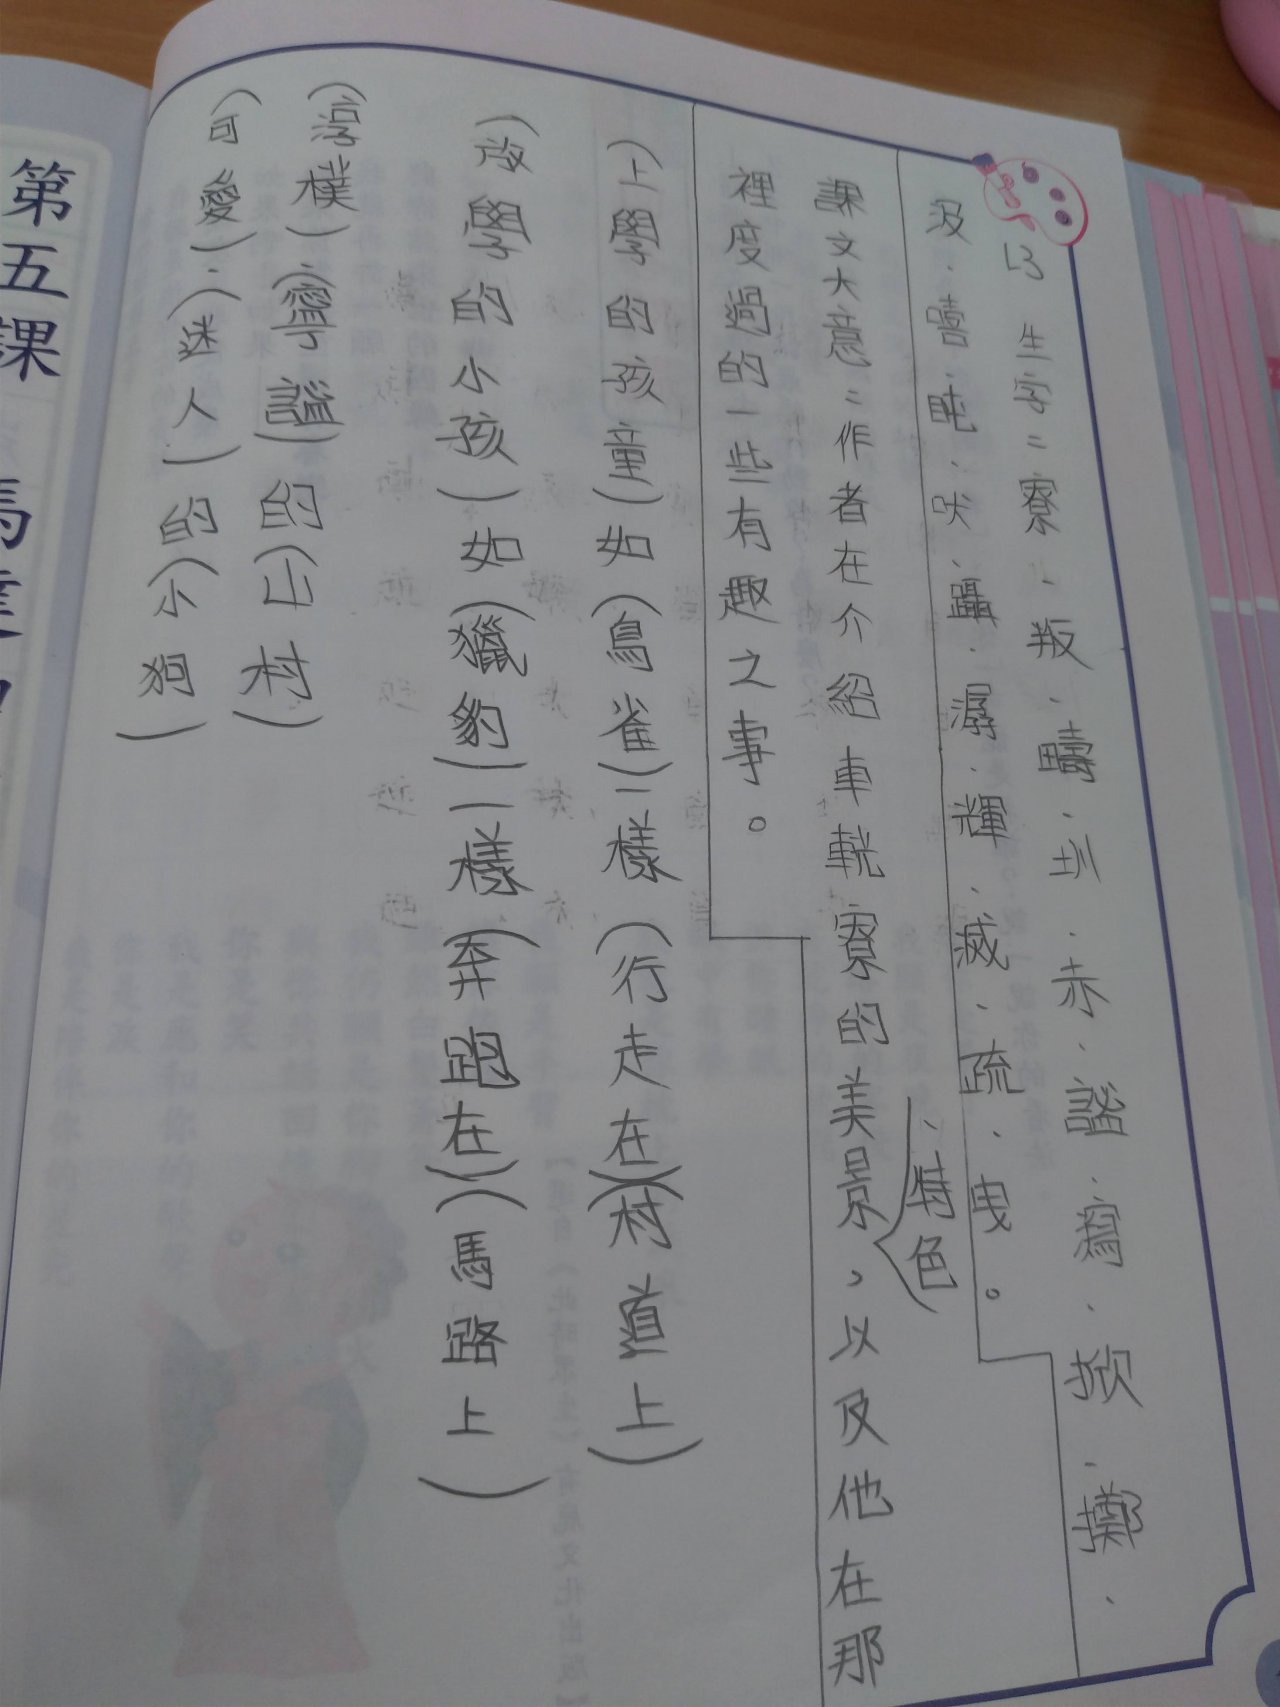 L3 生字：寮、叛、疇、圳、赤、謐、窩、掀、擲、
汲、嘻、盹、吠、躡、潺、輝、滅、疏、曳。
課文大意：作者在介紹車輄寮的美景、特色，以及他在那
裡度過的一些有趣之事。
(上學的孩童)如(鳥雀)一樣(行走在)(村道上)
(放學的小孩)如(獵豹)一樣(奔跑在)(馬路上)
(淳樸)、(寧謐)的(山村)
(可愛)、(迷人)的(小狗)
第五課